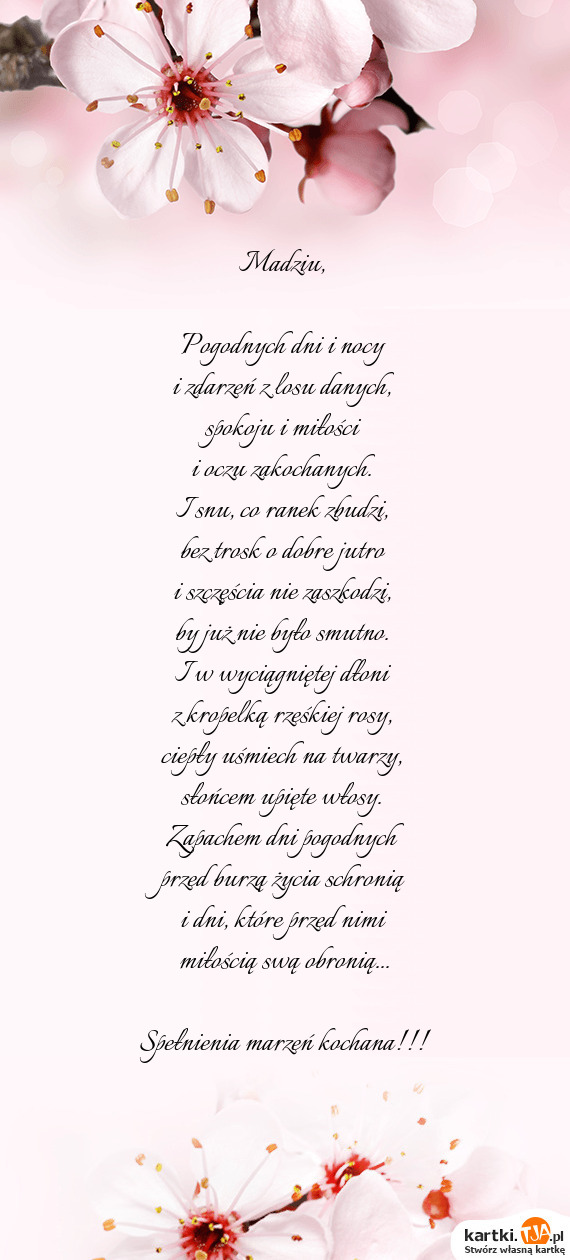 Madziu,
Pogodnych dni i nocy
i zdarzeń z losu danych,
spokoju i miłości
i oczu zakochanych.
I snu, co ranek zbudzi,
bez trosk o dobre jutro
i szczęścia nie zaszkodzi,
by już nie było smutno.
I w wyciągniętej dłoni
z kropelką rześkiej rosy,
ciepły uśmiech na twarzy,
słońcem upięte włosy.
Zapachem dni pogodnych
przed burzą życia schronią
i dni, które przed nimi
miłością swą obronią...
Spełnienia marzeń kochana!!!
kartki.TJA.pl
Stwórz własną kartkę